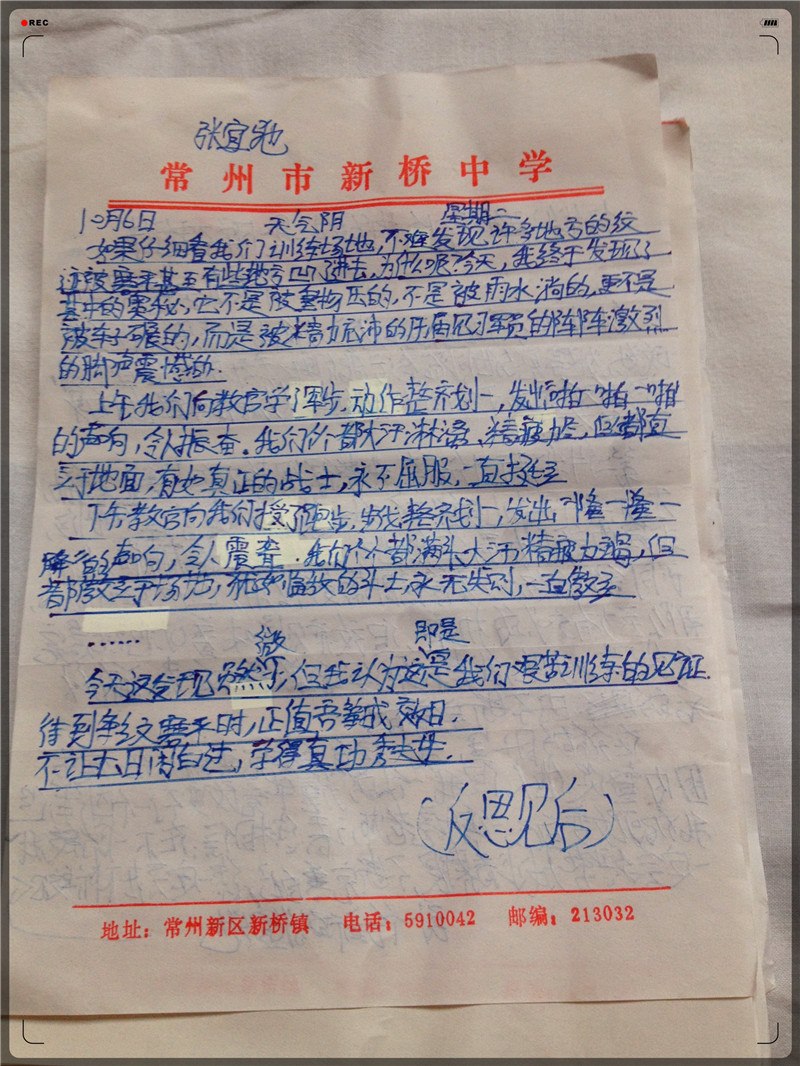 REC
张宜驰
常州市新桥中学
10月6日 天气阴 星期二
如果仔细看我们训练场地,不难发现许多地方的纹
还被磨平甚至有些地方凹了进去,为什么呢?今天,我终于发现了
其中的奥秘,它不是被重物压的,不是被雨水淌的,更不是
被车子碾的,而是被精力充沛的历届见习军员的阵阵激烈
的脚声震撼的.
上午我们向教官学了军步,动作整齐划一,发出"啪一啪一啪
的声响,令人振奋.我们个个都大汗淋漓,精疲力尽,但都直
立于地面,有如真正的战士,永不屈服,一直挺立
下午教官向我们授了步,步伐整齐划一,发出"隆一隆一
隆"的声响,令人震聋.我们个个都满头大汗精疲力竭,但
都傲立于场地,犹如临敌的斗士永无失利,一直傲立
......
微 即是
今天这发现然,但我认为这是我们要苦训练的见证.
待到纹磨平时,正值吾辈成效日.
不让六日闲白过,学得真功秀父母.
(反思见后)
地址:常州新区新桥镇 电话:5910042 邮编:213032